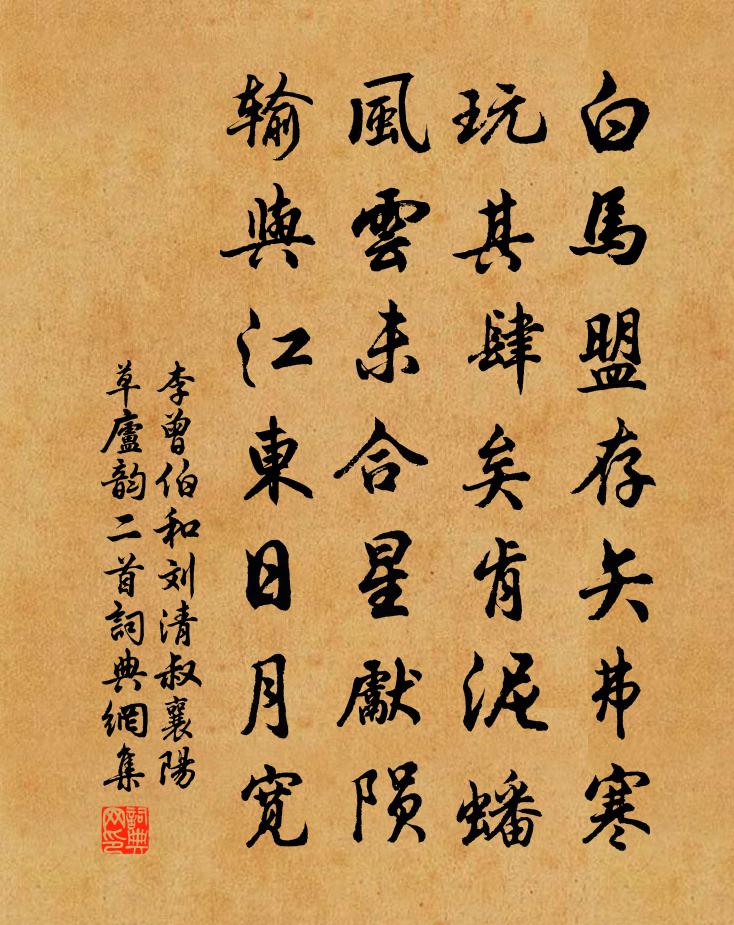 白馬盟存矢弗寒
玩其肆矣肯泥蟠
風雲未合星獻陨
輸與江東日月寬
李曾伯和刘清叔襄陽
草廬韵二首詞典網集
詞典网印